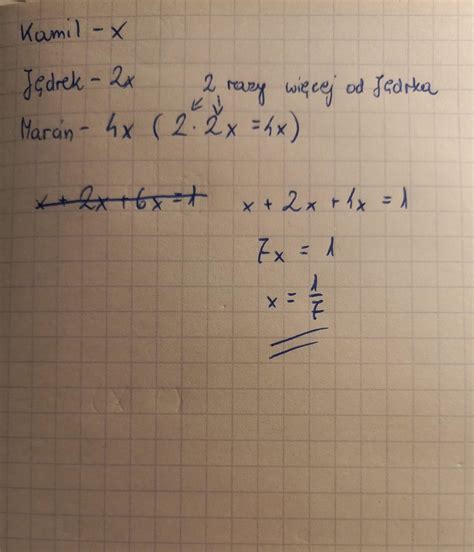 Kamil - x
Jędrek - 2x
2 razy więcej od Jędrka
Marcin - 4x ( 2 · 2x = 4x )
x + 2x + 6x = 1
x + 2x + 4x = 1
7x = 1
x = 1/7